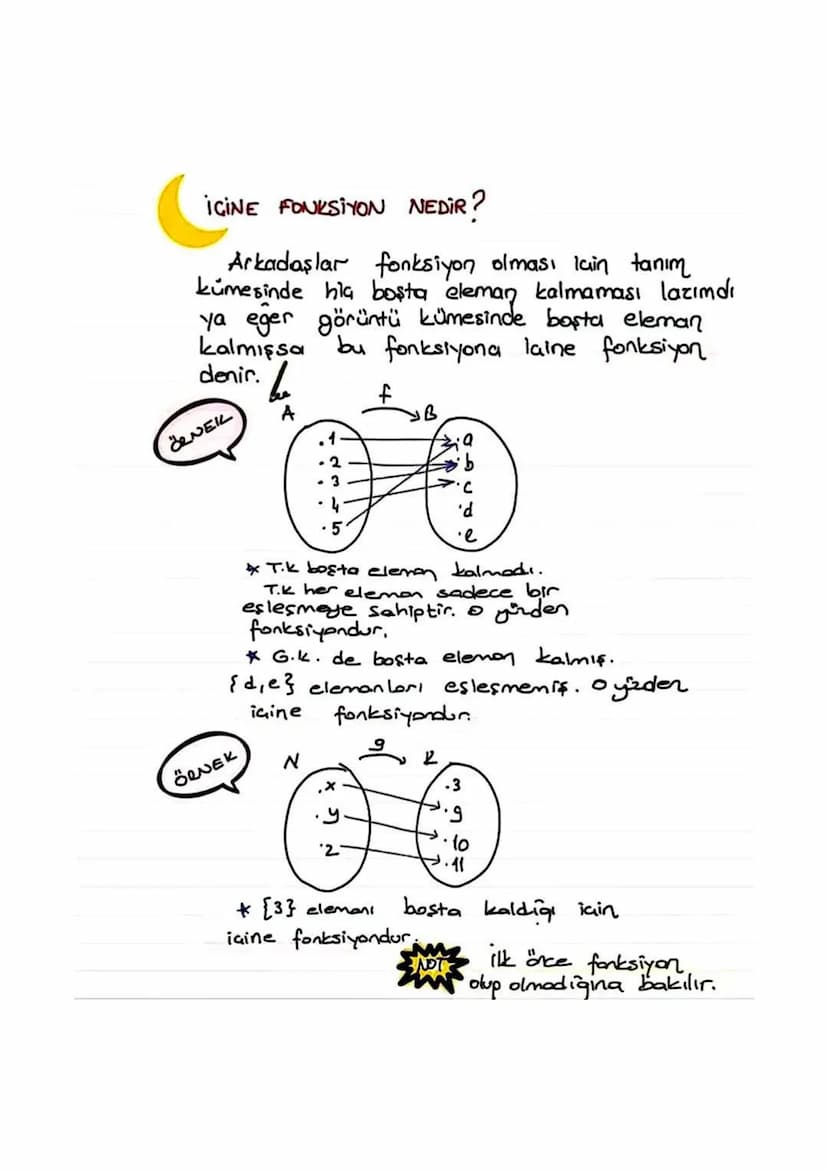 İÇİNE FONKSİYON NEDİR?
Arkadaşlar fonksiyon olması için tanım
kümesinde hiç boşta eleman kalmaması lazımdı
ya eğer görüntü kümesinde boşta eleman
kalmışsa bu fonksiyona içine fonksiyon
denir.
f
A B
ÖRNEK
.1 .a
.2 .b
.3 .c
.4 .d
.5 .e
* T.K boşta eleman kalmadı.
T.K her eleman sadece bir
eşleşmeye sahiptir. o yüzden
fonksiyondur.
* G.K. de boşta eleman kalmış.
{d,e} elemanları eşleşmemiş. o yüzden
içine fonksiyondur.
g
ÖRNEK
N K
.x .3
.y .9
.2 .10
.11
* {3} elemanı boşta kaldığı için
içine fonksiyondur.
NOT ilk önce fonksiyon
olup olmadığına bakılır.